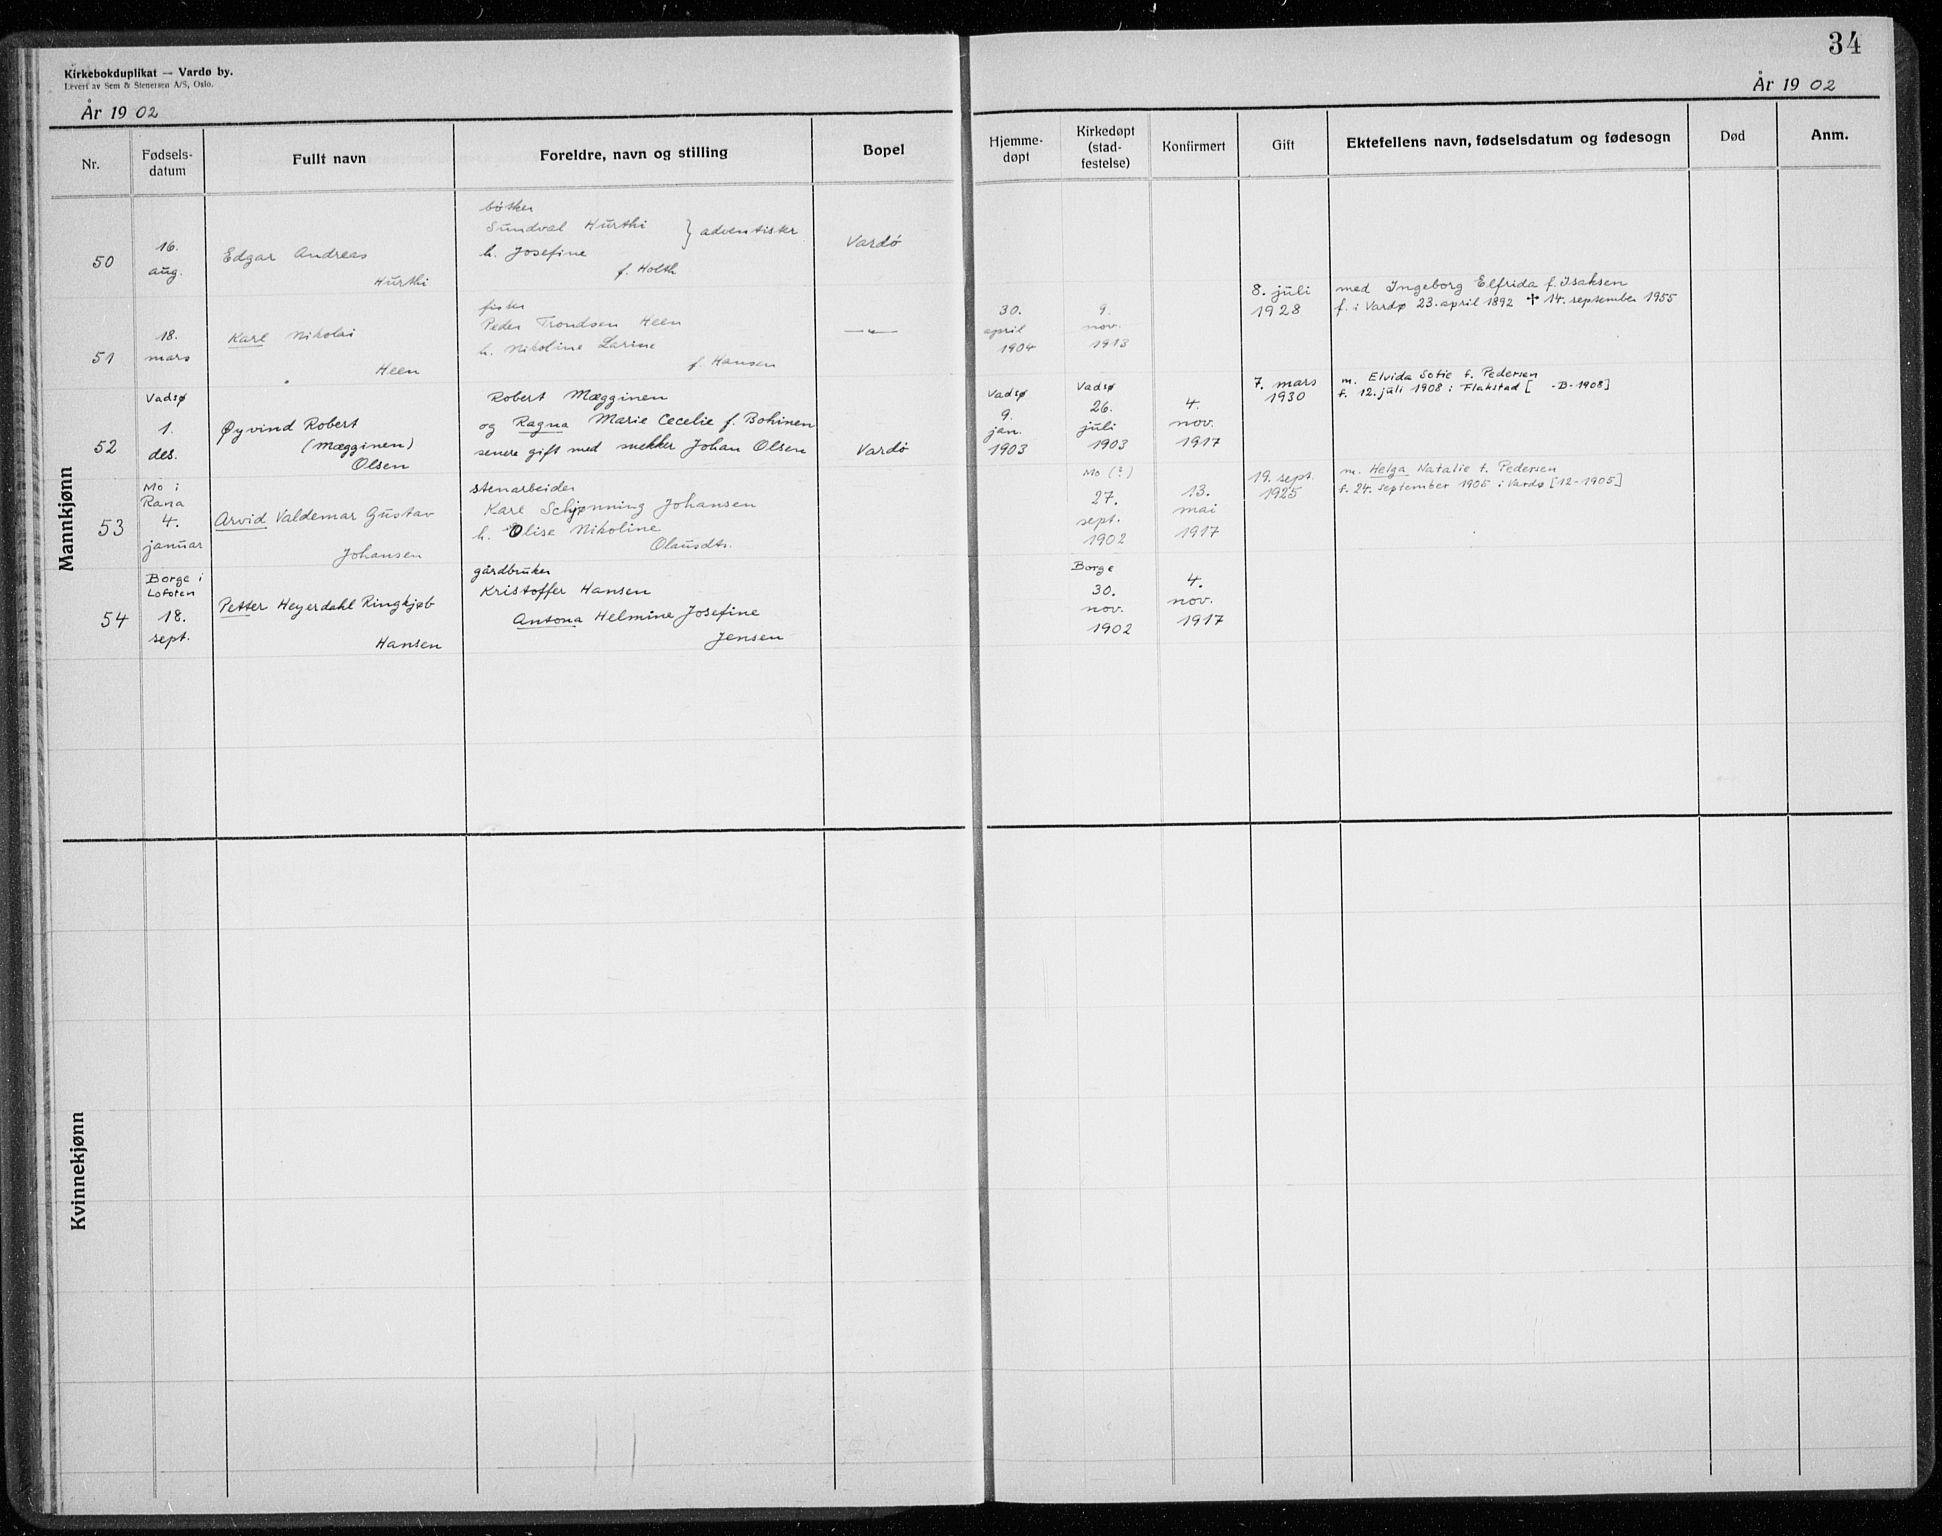 Kirkebokduplikat — Vardø by.
Levert av Sem & Stenersen A/S, Oslo.
År 1902
34
År 1902
Nr.
Fødsels-
datum
Fullt navn
Foreldre, navn og stilling
Bopel
Hjemme-
døpt
Kirkedøpt
(stad-
festelse)
Konfirmert
Gift
Ektefellens navn, fødselsdatum og fødesogn
Død
Anm.
Mannkjønn
50
16.
aug.
Edgar Andreas
Hurthi
bøtker
Sundval Hurthi } adventister
h. Josefine
f. Holth
Vardø
51
18.
mars
Karl Nikolai
Heen
fisker
Peder Trondsen Heen
h. Nikoline Larine
f. Hansen
—"—
30.
april
1904
9.
nov.
1913
8. juli
1928
med Ingeborg Elfrida f. Isaksen
f. i Vardø 23. april 1892 ✝ 14. september 1955
52
Vadsø
1.
des.
Øyvind Robert
(Mægginen)
Olsen
Robert Mægginen
og Ragna Marie Cecelie f. Bohinen
senere gift med snekker Johan Olsen
Vardø
Vadsø
9.
jan.
1903
Vadsø
26.
juli
1903
4.
nov.
1917
7. mars
1930
m. Elvida Sofie f. Pedersen
f. 12. juli 1908 i Flakstad [ -B-1908]
53
Mo i
Rana
4.
januar
Arvid Valdemar Gustav
Johansen
stenarbeider
Karl Schjønning Johansen
h. Olise Nikoline
Olausdtr.
Mo (?)
27.
sept.
1902
13.
mai
1917
19. sept.
1925
m. Helga Natalie f. Pedersen
f. 24. september 1905 i Vardø [12-1905]
54
Borge i
Lofoten
18.
sept.
Petter Heyerdahl Ringkjøb
Hansen
gårdbruker
Kristoffer Hansen
Antona Helmine Josefine
Jensen
Borge
30.
nov.
1902
4.
nov.
1917
Kvinnekjønn